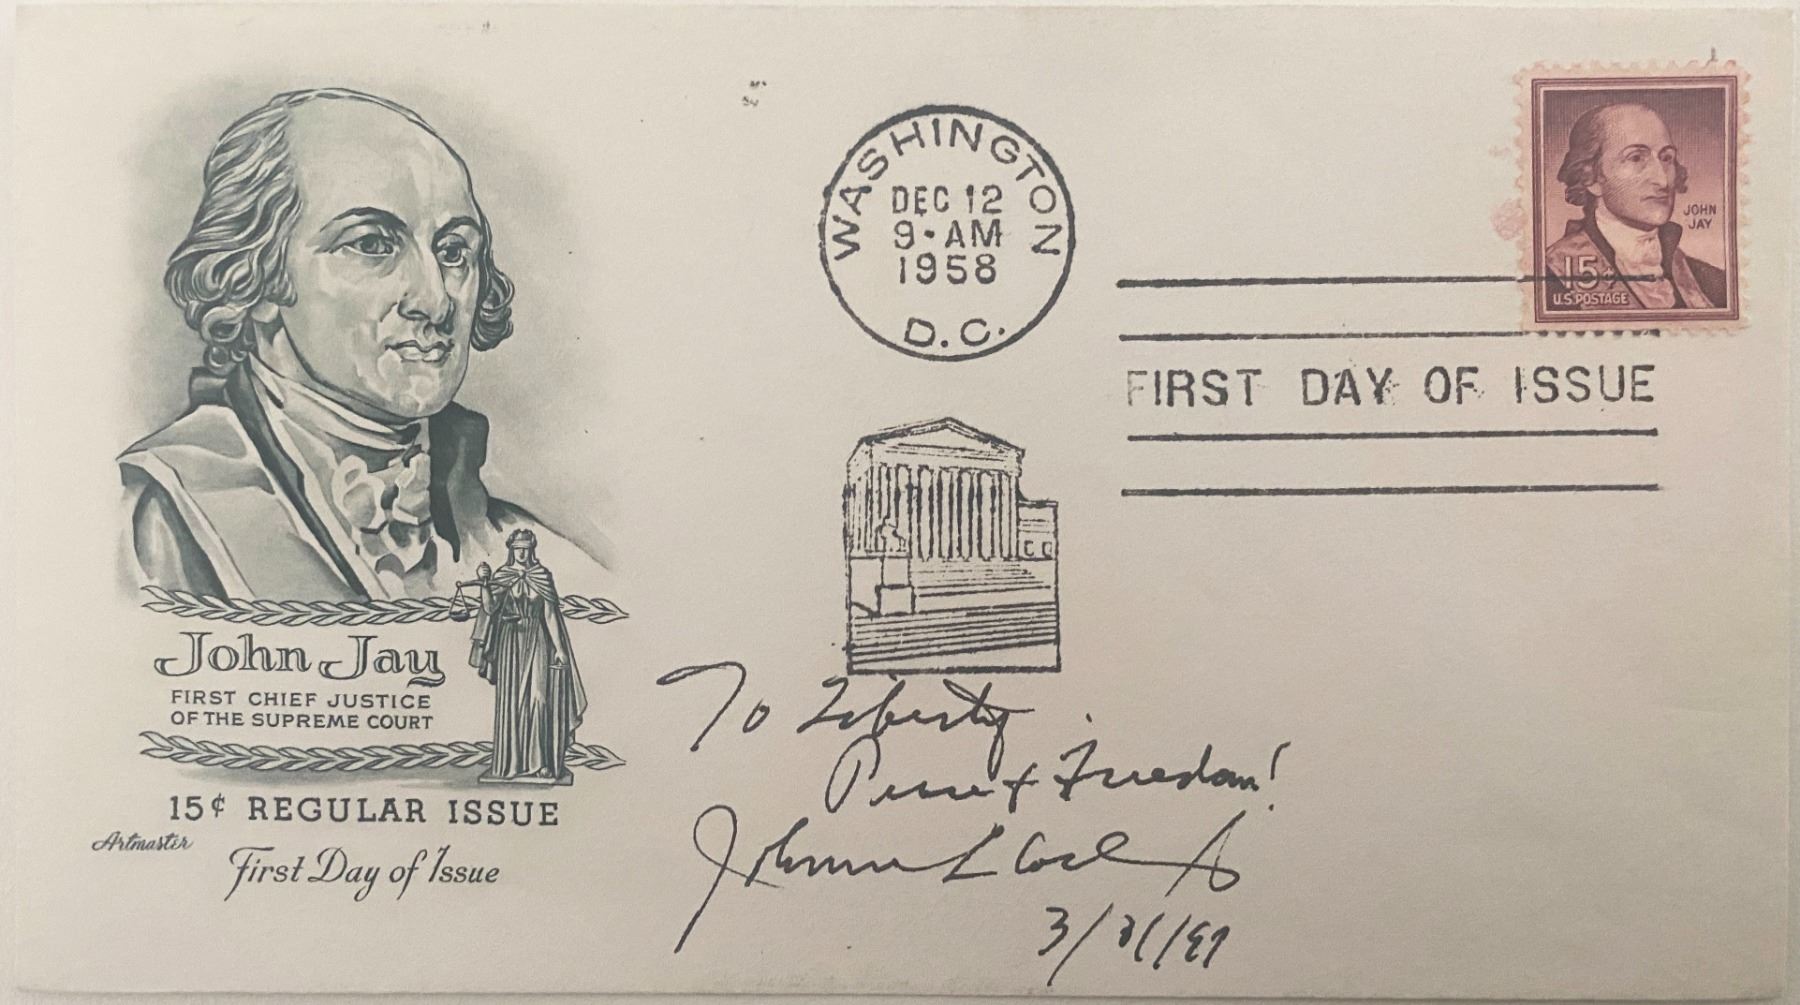 WASHINGTON
DEC 12
9·AM
1958
D.C.
JOHN
JAY
15¢
U.S. POSTAGE
FIRST DAY OF ISSUE
John Jay
FIRST CHIEF JUSTICE
OF THE SUPREME COURT
15¢ REGULAR ISSUE
Artmaster
First Day of Issue
To Liberty
Peace + Freedom!
Johnnie L Coch
3/31/97